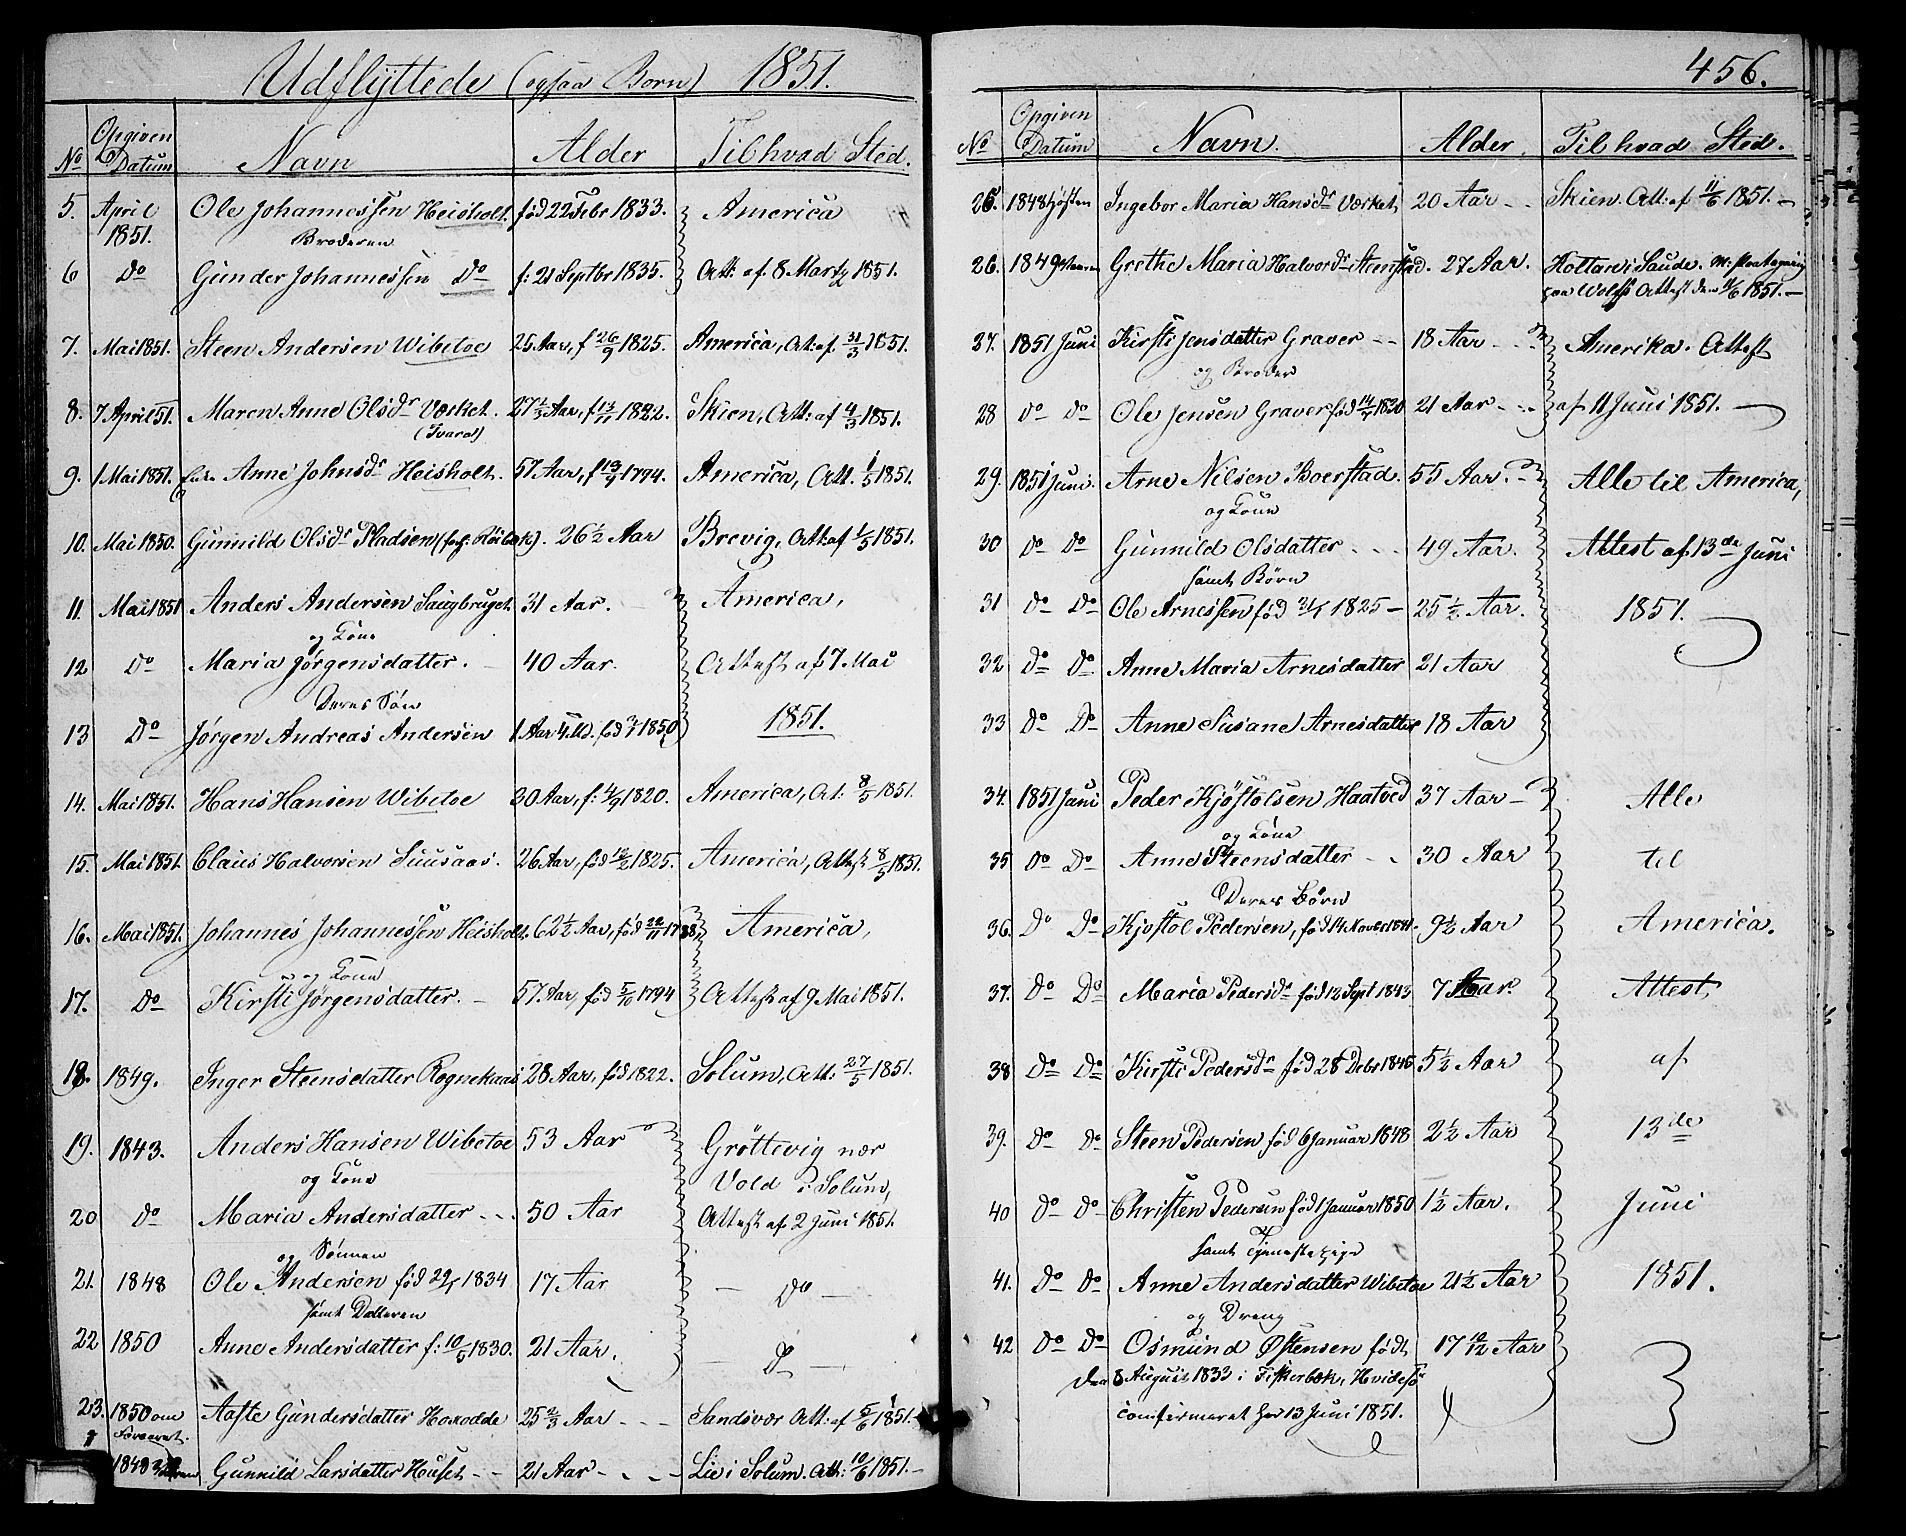 Udflyttede (ogsaa Børn) 1851.
No Opgiven Datum Navn Alder Til hvad Sted.
5. April 1851. Ole Johannessen Heisholt. fød 22 Febr 1833. America
Broderen
6 Do Gunder Johannessen Do f: 21 Septbr 1835. Att: af 8 Marty 1851.
7. Mai 1851. Steen Andersen Wibetoe 25 Aar, f 26/9 1825. America, Att: af 31/3 1851.
8. 7 April 51. Maren Anne Olsdr Værket. 27 1/3 Aar, f 1822. Skien, Att: af 4/3 1851.
9. 1 Mai 1851. Anne Johnsdr Heisholt. 57 Aar, f 1794. America, Att. 1/5 1851.
10. Mai 1850. Gunnild Olsdr Pladsen 26 1/2 Aar Brevig, Att af 1/5 1851.
11. Mai 1851 Anders Andersen Saugbruget. 31 Aar. America,
og Kone
12 Do Maria Jørgensdatter. 40 Aar. Attest af 7 Mai
Deres Søn
13 Do Jørgen Andreas Andersen 1 Aar 4 M. fød 1850 1851.
14. Mai 1851. Hans Hansen Wibetoe 30 Aar, f: 4/9 1820. America, At: 8/5 1851.
15. Mai 1851. Claus Halvorsen Suusaas. 26 Aar, fød 12/2 1825. America, Attest 8/5 1851.
16. Mai 1851. Johannes Johannessen Heisholt. 62 1/2 Aar, fød 22/11 1788, America,
og Kone
17. Do Kirsti Jørgensdatter. 57 Aar, fød 5/10 1794 Attest af 9 Mai 1851.
18. 1849. Inger Steensdatter Rognekaas 28 Aar, fød 1822. Solum, Att: 27/5 1851.
19. 1843. Anders Hansen Wibetoe 53 Aar Grøttevig nær
og Kone Vold i Solum,
20 Do Maria Andersdatter 50 Aar Attest af 2 Juni 1851.
og Sønnen
21. 1848 Ole Andersen fød 1834 17 Aar Do
samt Datteren
22 1850 Anne Andersdatter f: 10/5 1830. 21 Aar. Do
23. 1850 om Foraaret. Aaste Gundersdatter Hoxodde 25 2/3 Aar Sandsvær Att: af 5/6 1851.
1848 Gunnild Larsdatter Huset 21 Aar Lie i Solum. Att: 10/6 1851.
456.
No Opgiven Datum Navn. Alder. Til hvad Sted.
25. 1848 Høsten Ingebor Maria Hansdr Værket 20 Aar Skien. Att: af 11/6 1851.
26. 1849 Vaaren Grethe Maria Halvordsdr Steenstad. 27 Aar. Holtan i Saude.
paa Attest den 1851.
27. 1851 Juni Kirsti Jensdatter Graver 18 Aar Amerika. Attest
og Broder
28 Do Do Ole Jensen Graver fød 1830 21 Aar af 11 Juni 1851.
29. 1851 Juni. Arne Nilsen Boerstad. 55 Aar. Alle til America,
og Kone
30 Do Do Gunnild Olsdatter 49 Aar. Attest af 13de Juni
samt Børn
31 Do Do Ole Arnessen fød 1825 25 1/2 Aar. 1851.
32. Do Do Anne Maria Arnesdatter 21 Aar
33 Do Do Anne Susane Arnesdatter 18 Aar
34. 1851 Juni Peder Kjøstolsen Haatved 37 Aar Alle
og Kone
35 Do Do Anne Steensdatter 30 Aar til
Deres Børn
36. Do Do Kjøstol Pedersen, fød 14 Novbr 1841. 9 1/2 Aar America.
37. Do Do Maria Pedersdr fød 12 Sept 1843 7 Aar. Attest
38 Do Do Kirsti Pedersdr fød 28 Debr 1845 5 1/2 Aar af
39. Do Do Steen Pedersen fød 6 Januar 1848 2 1/2 Aar 13de
40 Do Do Christen Pedersen fød 1 Januar 1850 1 1/2 Aar. Juni
samt Tjenestepige
41. Do Do Anne Andersdatter Wibetoe 21 1/2 Aar 1851.
og Dreng
42 Do Do Osmund Østensen født 17 10/12 Aar
den 8 August 1833 i Fiskerbæk, Hvidesø
confirmeret her 13 Juni 1851.